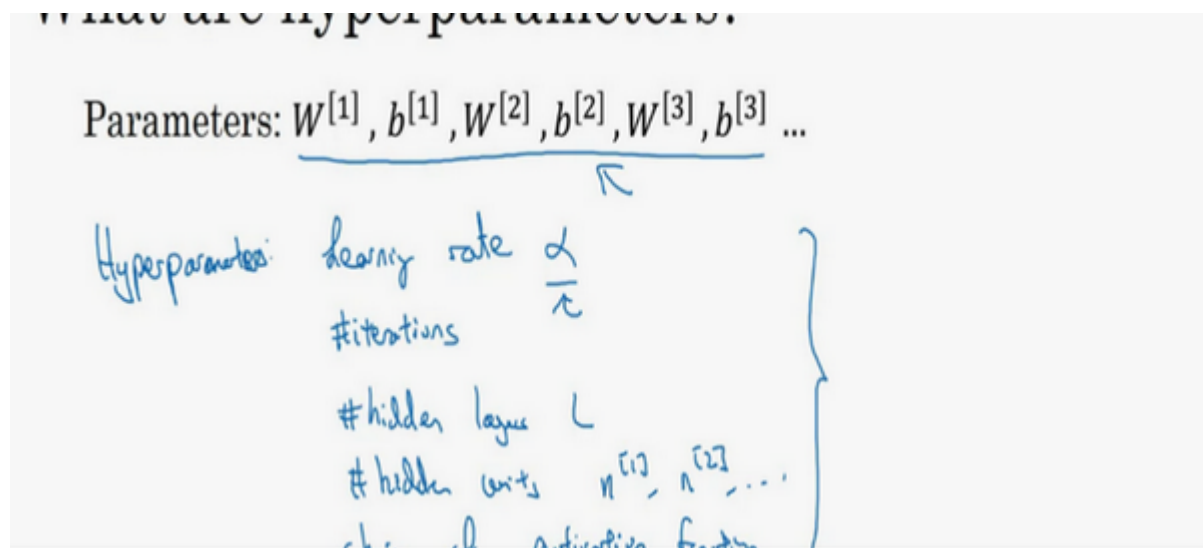 What are hyperparameters?
Parameters: W^[1], b^[1], W^[2], b^[2], W^[3], b^[3] ...
Hyperparameters: learning rate α
#iterations
#hidden layers L
#hidden units n^[1], n^[2], ...
choice of activation function